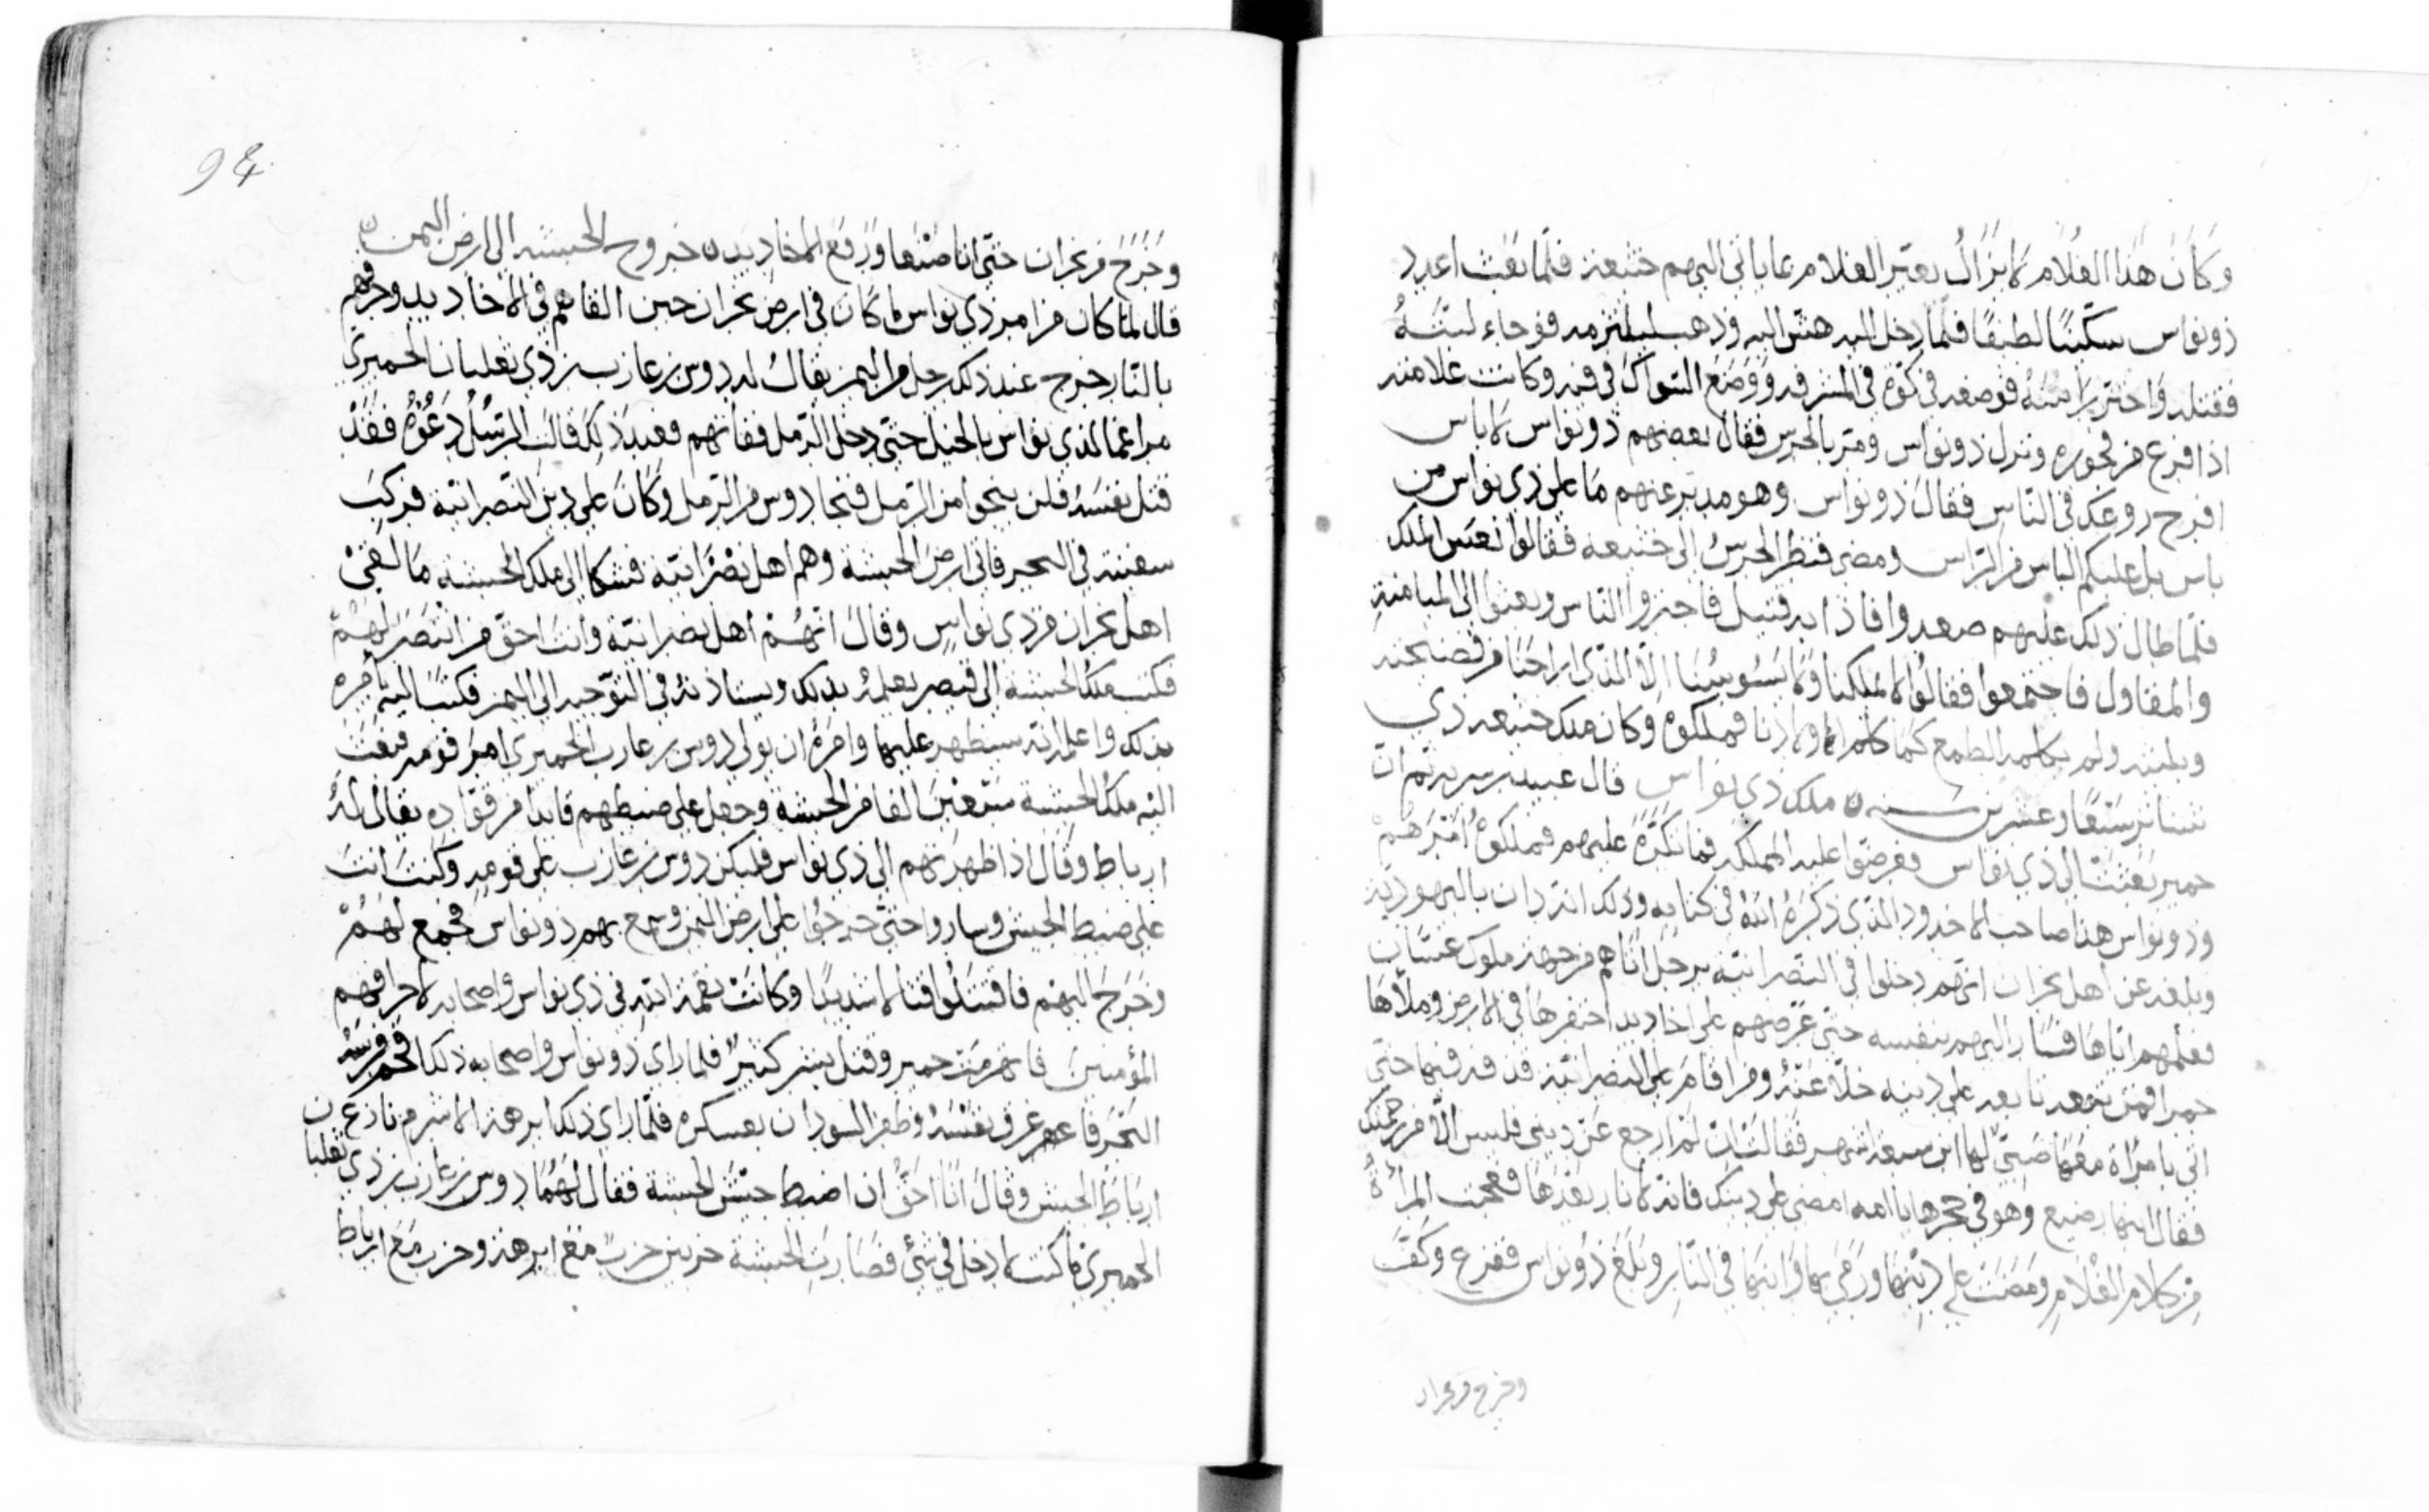 وكان هذا الغلام لا يزال يعير الغلام عاباتى اليهم خنيعة فلما بعث اعدد
ذو نواس سكينا لطيفا فلما دخل اليه هش اليه وذهب ليلتزمه فوجاء لبته
فقتله واحتز راسه فوضعه فى كوة فى المشرفه ووضع السواك فى فيه وكانت علامته
اذا فرع من فجوره ونزل ذو نواس ومر بالحرس فقال بعضهم ذو نواس لا باس
افرح روعك فى الناس فقال ذو نواس وهو مدبر عنهم ما على ذى نواس من
باس بل عليكم الباس من الراس ومضى فنظر الحرس الى خنيعه فقالوا نعس الملك
فلما طال ذلك عليهم صعدوا فاذا به قتيل فاخبروا الناس وبعثوا الى المثامنة
والمقاول فاجتمعوا فقالوا لا يملكنا ولا يسوسنا الا الذى اراحنا من فضيحته
وبليته ولم يكلمه الطمع كما كلم اولادنا فملكوه وكان ملك خنيعه ذى
شناتر سبعا وعشرين سنه ٥ ملك ذى نواس قال عبيد بن سريه ثم ان
حمير بعثت الى ذى نواس فعرضوا عليه المملكه فما نكره عليهم فملكوه امرهم
وذو نواس هذا صاحب الاخدود الذى ذكره الله فى كتابه وذلك انه دان باليهودية
وبلغه عن اهل نجران انهم دخلوا فى النصرانية برجل اتاهم من جهة ملوك غسان
فعلمهم اياها فسار اليهم بنفسه حتى عرضهم على اخاديد احتفرها فى الارض وملاها
جمرا فمن تابعه على دينه خلا عنه ومن اقام على النصرانية قذفه فيها حتى
اتى بامراة معها صبى لها ابن سبعة اشهر فقالت ان لم ارجع عن دينى فليس الا من رحمتك
فقال ابنها رضيع وهو فى حجرها يا امه امضى على دينك فانه لا نار بعدها فعجبت المراة
من كلام الغلام ومضت على دينها ورمى بها وابنها فى النار وبلغ ذو نواس ففرع وكف
وخرج من نجران
94
وخرج من نجران حتى اتا صنعا ورفع الاخاديد ٥ خروج الحبشه الى ارض اليمن ٥
قال لما كان من امر ذى نواس ما كان فى ارض نجران حين القاهم فى الاخاديد وحرقهم
بالنار خرج عند ذلك رجل من اليمن يقال له دوس بن عازب بن ذى ثعلبان الحميرى
مراغما لذى نواس بالخيل حتى دخل الرمل ففاتهم فعند ذلك قالت الرسل دعوه فقد
قتل نفسه فلن ينجوا من الرمل فنجا دوس من الرمل وكان على دين النصرانية فركب
سفينة فى البحر فاتى ارض الحبشة وهم اهل نصرانية فشكا الى ملك الحبشة ما لقى
اهل نجران من ذى نواس وقال انهم اهل نصرانية وانت احق من انتصر لهم
فكتب ملك الحبشة الى قيصر يعلمه بذلك ويستاذنه فى التوجيه الى اليمن فكتب اليه يامره
بذلك واعلمه انه سيظهر عليها وامره ان يولى دوس بن عازب الحميرى امر قومه فبعث
اليه ملك الحبشة سبعين الفا من الحبشة وجعل على ضبطهم قايدا من قواده يقال له
ارباط وقال اذا ظهرتهم الى ذى نواس فليكن دوس بن عازب على قومه وكنت انت
على ضبط الحبش وساروا حتى خرجوا على ارض اليمن وسمع بهم ذو نواس فجمع لهم
وخرج اليهم فاقتتلوا قتالا شديدا وكانت نقمة الله فى ذى نواس واصحابه لاحراقهم
المؤمنين فانهزمت حمير وقتل بشر كثير فلما راى ذو نواس واصحابه ذلك اقحم فرسه
البحر فاعمر غرق نفسه وظفر السودان بعسكره فلما راى ذلك ابرهة الاشرم نازع بن
ارباط الحبش وقال انا احق ان اضبط جيش الحبشة فقال لهما دوس بن عازب بن ذى ثعلبا
الحميرى ما كنت لادخل فى شئ فصارت الحبشة حزبين حزب مع ابرهة وحزب مع ارباط